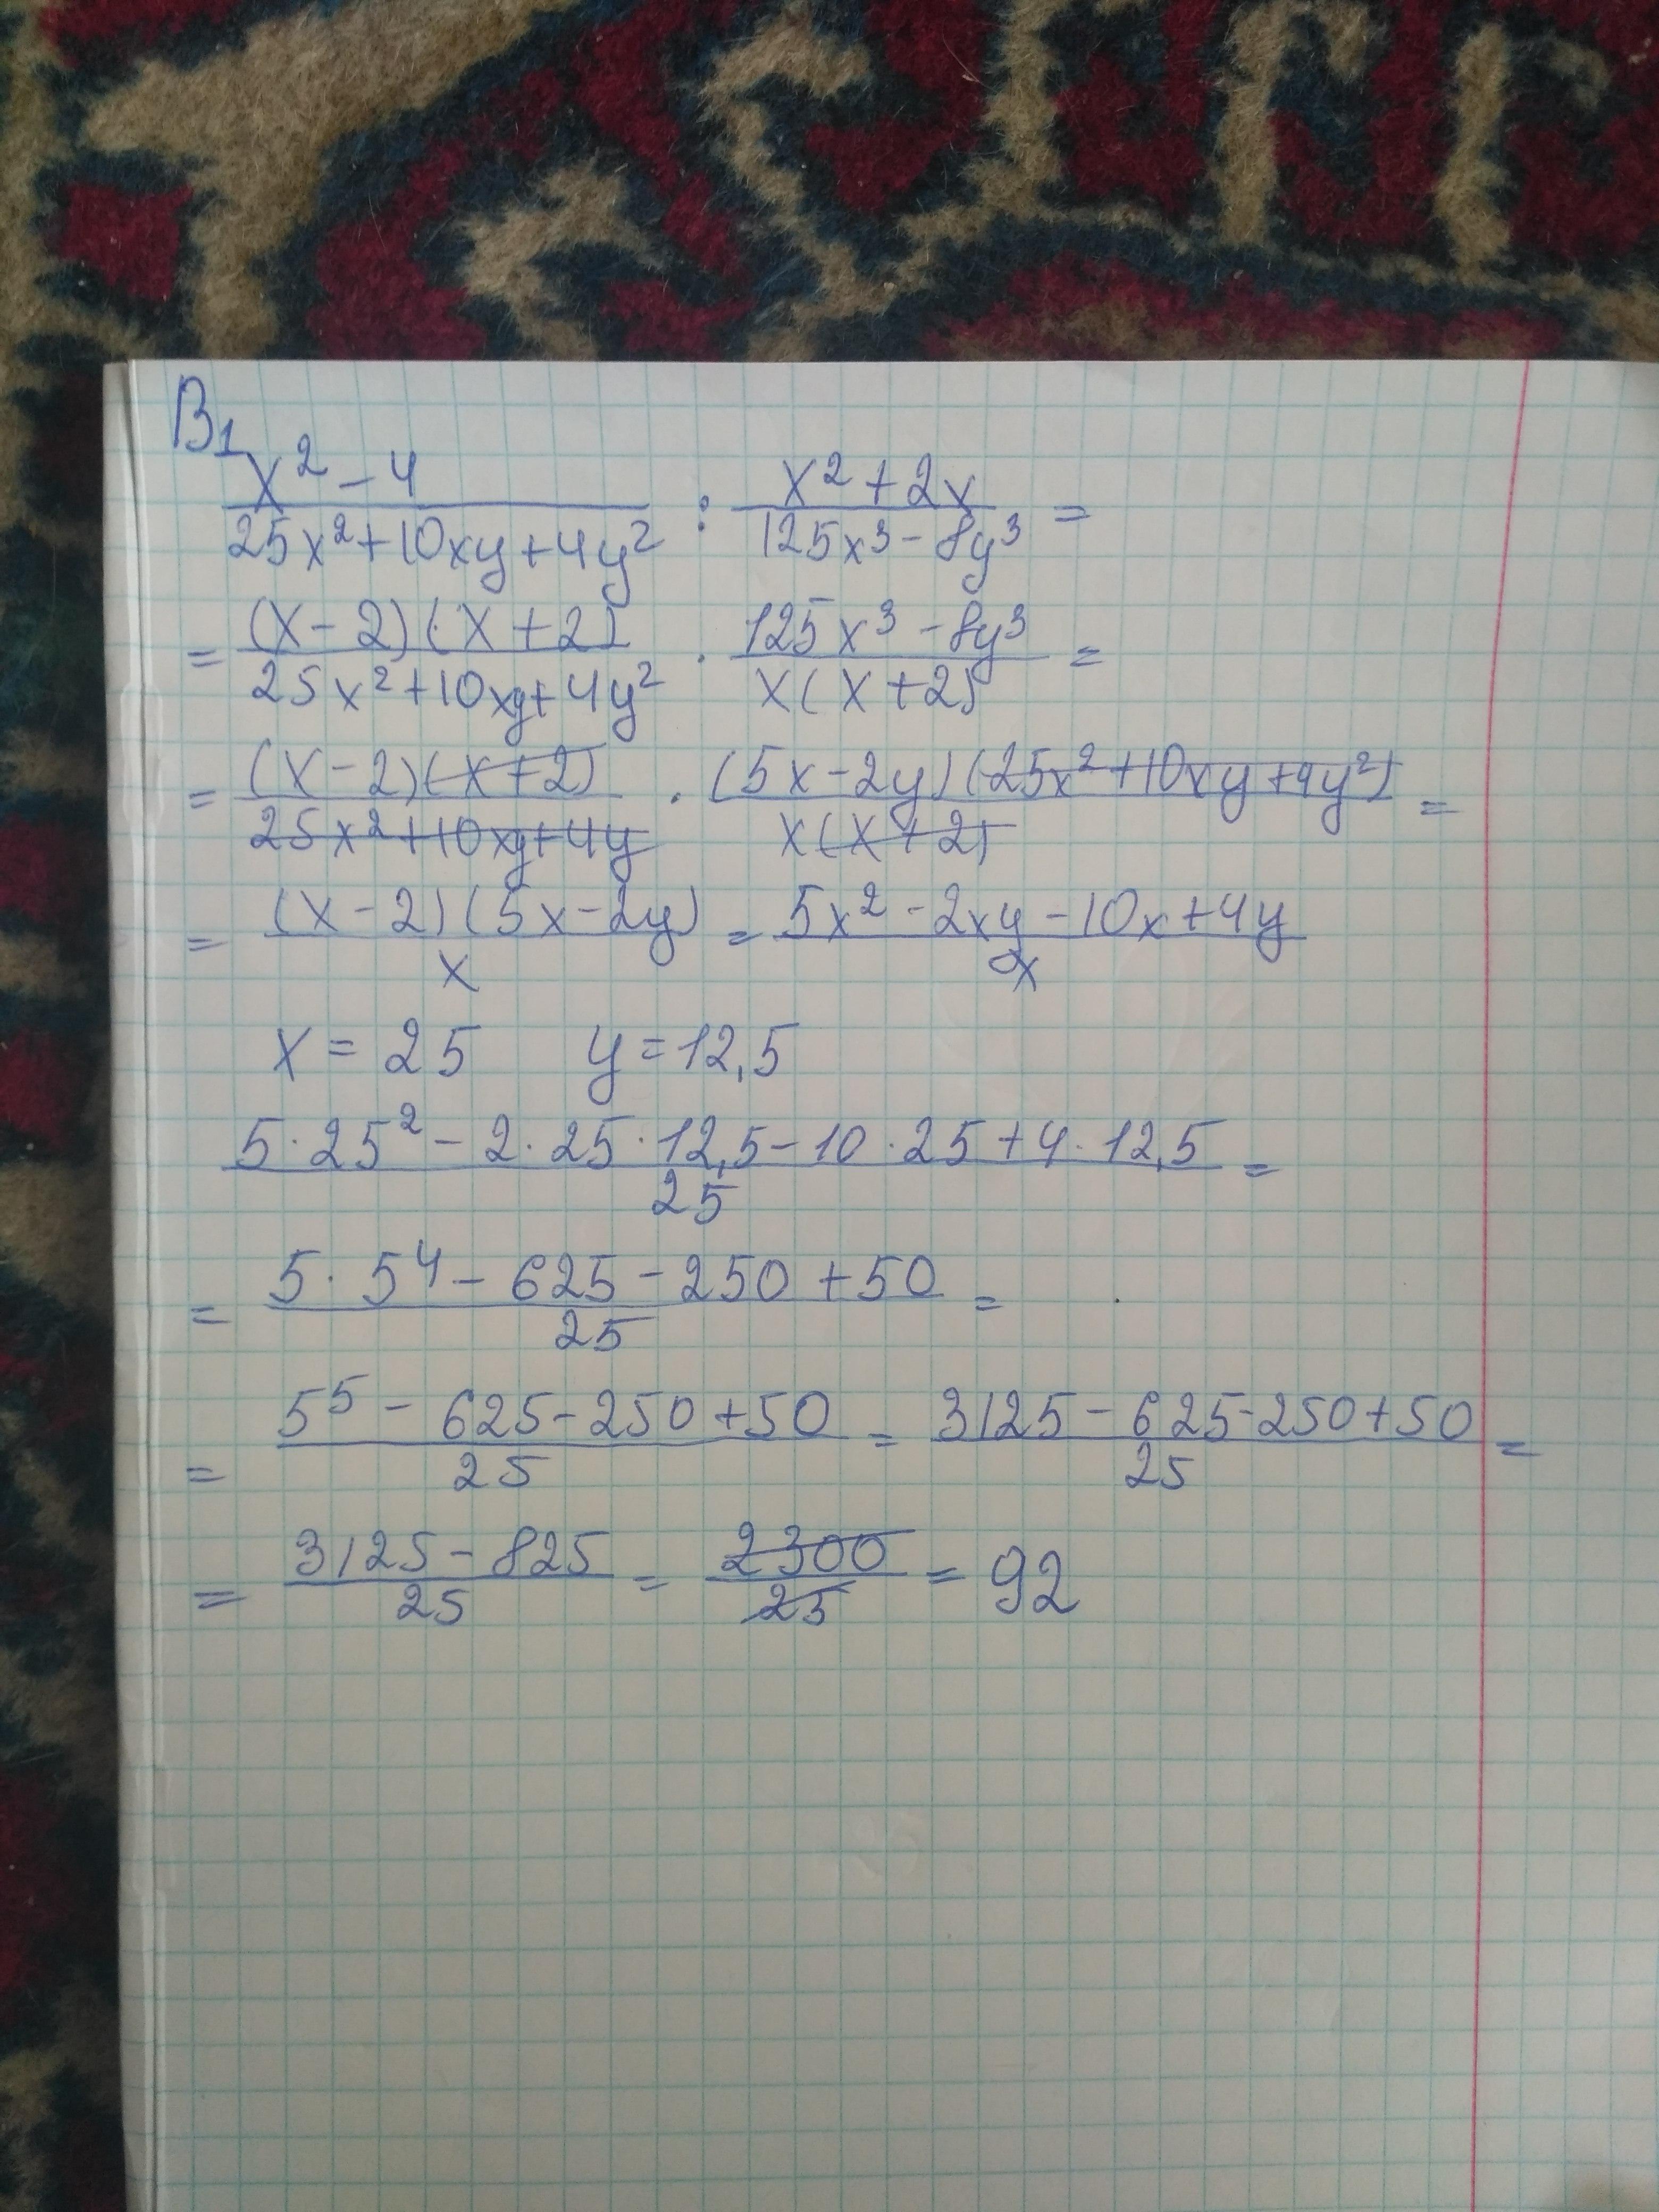 B1
x² - 4 / 25x² + 10xy + 4y² : x² + 2x / 125x³ - 8y³ =
= (x - 2)(x + 2) / 25x² + 10xy + 4y² · 125x³ - 8y³ / x(x + 2) =
= (x - 2)(x + 2) / 25x² + 10xy + 4y · (5x - 2y)(25x² + 10xy + 4y²) / x(x + 2) =
= (x - 2)(5x - 2y) / x = 5x² - 2xy - 10x + 4y / x
x = 25 y = 12,5
5 · 25² - 2 · 25 · 12,5 - 10 · 25 + 4 · 12,5 / 25 =
= 5 · 5⁴ - 625 - 250 + 50 / 25 =
= 5⁵ - 625 - 250 + 50 / 25 = 3125 - 625 - 250 + 50 / 25 =
= 3125 - 825 / 25 = 2300 / 25 = 92